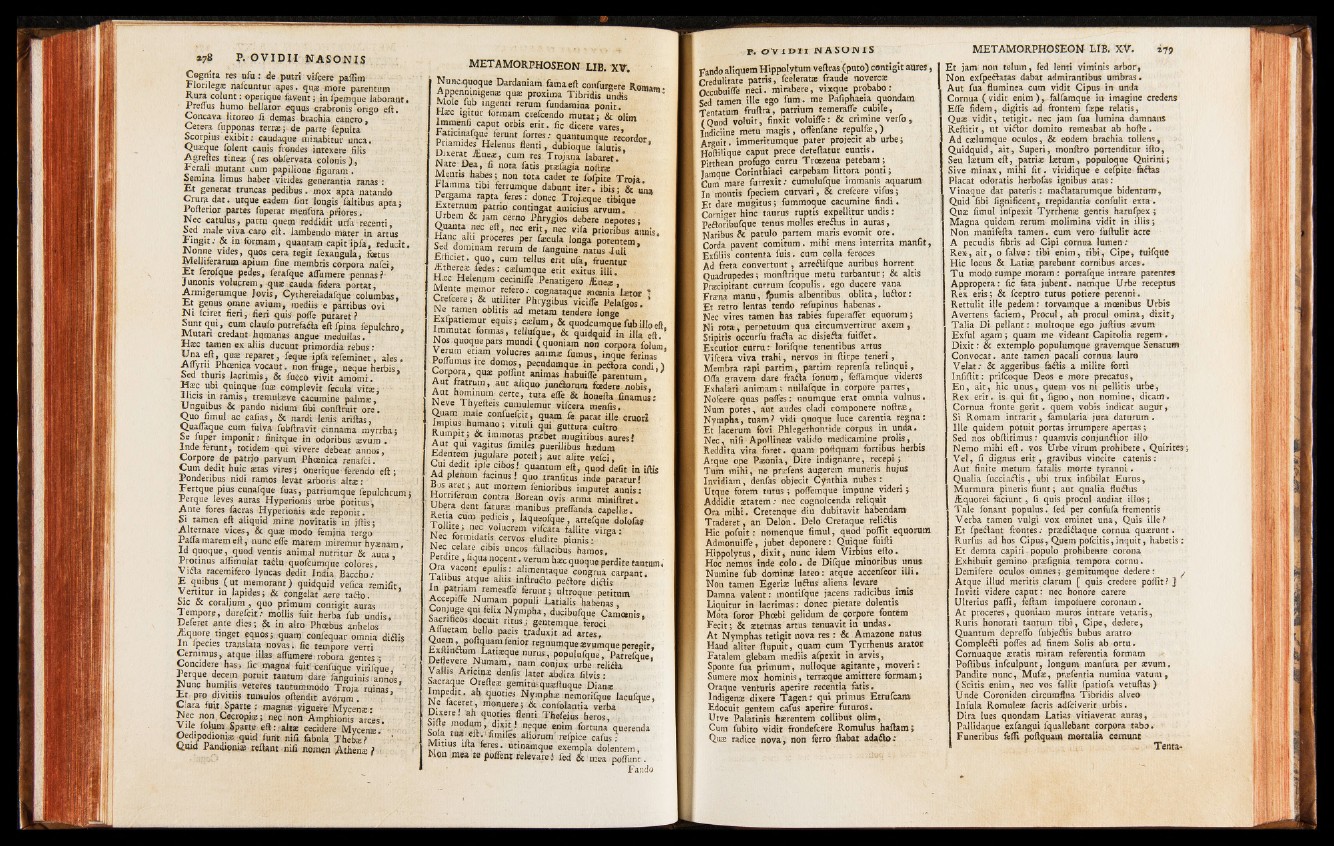 278 P. OVIDII NASONIS
Cognita res usu: de putri viscere passim
Florilegæ nascuntur apes. quæ more parentum
Rura colunt: operique favent; in spemque laborant.
Pressus humo bellator equus crabronis origo est.
Concava litoreo si demas brachia cancro,
Cetera supponas terræ; de parte sepulta
Scorpius exibit: caudaque minabitur unca.
Quæque solent canis frondes intexere filis
Agrestes tineæ (res observata colonis),
Ferali mutant cum papilione figuram.
Semina limus habet virides generantia ranas:
Et generat truncas pedibus. mox apta natando
Crura dat. utque eadem sint longis saltibus apta;
Posterior partes superat mensura priores.
Nec catulus, partu quem reddidit ursa recenti,
Sed male viva caro est. lambendo mater in artus
Fingit. & in formam, quantam capit ipsa, reducit.
Nonne vides, quos cera tegit sexangula, fœtus
Melliferarum apium sine membris corpora nasci,
Et serosque pedes, serasque assumere pennas?
Junonis volucrem, quæ cauda sidera portat,
Armigerumque Jovis, Cythereiadasque columbas,
Et genus omne avium, mediis e partibus ovi
Ni sciret fieri, fieri quis posse putaret?
Sunt qui, cum clauso putrefacta est spina sepulchro,
Mutari credant humanas angue medullas.
Hæc tamen ex aliis ducunt primordia rebus:
Una est, quæ reparet, seque ipsa reseminet, ales.
Assyrii Phœnica vocant. non fruge, neque herbis,
Sed thuris lacrimis, & succo vivit amomi.
Hæc ubi quinque suæ complevit secula vitæ,
Ilicis in ramis, tremulæve cacumine palmæ,
Unguibus & pando nidum sibi construit ore.
Quo simul ac casias, & nardi lenis aristas,
Quassaque cum fulva substravit cinnama myrrha;
Se super imponit: finitque in odoribus ævum.
Inde ferunt, totidem qui vivere debeat annos,
Corpore de patrio parvum Phœnica renasci.
Cum dedit huic ætas vires; onerique ferendo est;
Ponderibus nidi ramos levat arboris altæ:
Fertque pius cunasque suas, patriumque sepulchrum;
Perque leves auras Hyperionis urbe potitus,
Ante fores sacras Hyperionis æde reponit.
Si tamen est aliquid miræ novitatis in istis;
Alternare vices, & quæ modo femina tergo
Passa marem est, nunc esse marem miremur hyænam.
Id quoque, quod ventis animal nutritur & aura,
Protinus assimulat tactu quoscumque colores.
Victa racemifero lyncas dedit India Baccho:
E quibus (ut memorant) quidquid vesica remisit,
Vertitur in lapides; & congelat aere tacto.
Sic & coralium, quo primum contigit auras
Tempore, durescit: mollis fuit herba sub undis.
Deseret ante dies; & in alto Phœbus anhelos
Æquore tinget equos; quam consequar omnia dictis
In species translata novas. sic tempore verti
Cernimus, atque illas assumere robora gentes;
Concidere has. sic magna fuit censuque virisque,
Perque decem potuit tantum dare sanguinis annos,
Nunc humilis veteres tantummodo Troja ruinas,
Et pro divitiis tumulos ostendit avorum.
Clara fuit Sparte: magnæ viguere Mycenæ:
Nec non Cecropiæ; nec non Amphionis arces.
Vile solum Sparte est: altæ cecidere Mycenæ.
Oedipodioniæ quid sunt nisi fabula Thebæ?
Quid Pandioniæ restant nisi nomen Athenæ?
METAMORPHOSEON LIB. XV.
Nunc quoque Dardaniam fama est consurgere Romam:
Appenninigenæ quæ proxima Tibridis undis
Mole sub ingenti rerum fundamina ponit.
Hæc igitur formam crescendo mutat; & olim
Immensi caput orbis erit. sic dicere vates,
Faticinasque ferunt sortes: quantumque recordor,
Priamides Helenus flenti, dubioque salutis,
Dixerat Æneæ, cum res Trojana labaret.
Nate Dea, si nota satis præsagia nostræ
Mentis habes; non tota cadet te sospite Troja.
Flamma tibi ferrumque dabunt iter. ibis; & una
Pergama rapta feres: donec Trojæque tibique
Externum patrio contingat amicius arvum.
Urbem & jam cerno Phrygios debere nepotes;
Quanta nec est, nec erit, nec visa prioribus annis.
Hanc alii proceres per sæcula longa potentem,
Sed dominam rerum de sanguine natus Iuli
Efficiet. quo, cum tellus erit usa, fruentur
Æthereæ sedes: cælumque erit exitus illi.
Hæc Helenum cecinisse Penatigero Æneæ,
Mente memor refero: cognataque mœnia lætor
Crescere; & utiliter Phrygibus vicisse Pelasgos.
Ne tamen oblitis ad metam tendere longe
Exspatiemur equis; cælum, & quodcumque sub illo est,
Immutat formas, tellusque, & quidquid in illa est.
Nos quoque pars mundi (quoniam non corpora solum,
Verum etiam volucres animæ sumus, inque ferinas
Possumus ire domos, pecudumque in pectora condi,)
Corpora, quæ possint animas habuisse parentum,
Aut fratrum, aut aliquo junctorum fœdere nobis,
Aut hominum certe, tuta esse & honesta sinamus:
Neve Thyesteis cumulemur viscera mensis.
Quam male consuescit, quam se parat ille cruori
Impius humano; vituli qui guttura cultro
Rumpit; & immotas præbet mugitibus aures!
Aut qui vagitus similes puerilibus hædum
Edentem jugulare potest; aut alite vesci,
Cui dedit ipse cibos! quantum est, quod desit in istis
Ad plenum facinus! quo transitus inde paratur!
Bos aret; aut mortem senioribus imputet annis:
Horriferum contra Borean ovis arma ministret.
Ubera dent saturæ manibus pressanda capellæ.
Retia cum pedicis, laqueosque, artesque dolosas
Tollite; nec volucrem viscata fallite virga:
Nec formidatis cervos eludite pinnis:
Nec celate cibis uncos fallacibus hamos.
Perdite, siqua nocent. verum hæc quoque perdite tantum.
Ora vacent epulis: alimentaque congrua carpant.
Talibus atque aliis instructo pectore dictis
In patriam remeasse ferunt; ultroque petitum
Accepisse Numam populi Latialis habenas,
Conjuge qui felix Nympha, ducibusque Camœnis,
Sacrificos docuit ritus; gentemque feroci
Assuetam bello pacis traduxit ad artes.
Quem, postquam senior regnumque ævumque peregit,
Exstinctum Latiæque nurus, populusque, Patresque,
Deflevere Numam. nam conjux urbe relicta
Vallis Aricinæ densis latet abdita silvis:
Sacraque Oresteæ gemitu questuque Dianæ
Impedit. ah quoties Nymphæ nemorisque lacusque,
Ne faceret, monuere; & consolantia verba
Dixere! ah quoties flenti Theseius heros,
Siste modum, dixit! neque enim fortuna querenda
Sola tua est. similes aliorum respice casus:
Mitius ista feres. utinamque exempla dolentem,
Non mea te possent relevare! sed & mea possunt.
Fando
P. OVIDII NASONIS
Fando aliquem Hippolytum vestras (puto) contigit aures,
Credulitate patris, sceleratæ fraude novercæ
Occubuisse neci. mirabere, vixque probabo:
Sed tamen ille ego sum. me Pasiphaeia quondam
Tentatum frustra, patrium temerasse cubile,
(Quod voluit, finxit voluisse: & crimine verso,
Indiciine metu magis, offensane repulsæ,)
Arguit. immeritumque pater projecit ab urbe;
Hostilique caput prece detestatur euntis.
Pittheam profugo curru Trœzena petebam;
Jamque Corinthiaci carpebam littora ponti;
Cum mare surrexit: cumulusque immanis aquarum
In montis speciem curvari, & crescere visus;
Et dare mugitus; summoque cacumine findi.
Corniger hinc taurus ruptis expellitur undis:
Pectoribusque tenus molles erectus in auras,
Naribus & patulo partem maris evomit ore.
Corda pavent comitum. mihi mens interrita mansit,
Exsiliis contenta suis. cum colla feroces
Ad freta convertunt, arrectisque auribus horrent
Quadrupedes; monstrique metu turbantur; & altis
Præcipitant currum scopulis. ego ducere vana
Fræna manu, spumis albentibus oblita, luctor:
Et retro lentas tendo resupinus habenas.
Nec vires tamen has rabies superasset equorum;
Ni rota, perpetuum qua circumvertitur axem,
Stipitis occursu fracta ac disjecta fuisset.
Excutior curru: lorisque tenentibus artus
Viscera viva trahi, nervos in stirpe teneri,
Membra rapi partim, partim reprensa relinqui,
Ossa gravem dare fracta sonum, fessamque videres
Exhalari animam; nullasque in corpore partes,
Noscere quas posses: unumque erat omnia vulnus.
Num potes, aut audes cladi componere nostræ,
Nympha, tuam? vidi quoque luce carentia regna:
Et lacerum fovi Phlegethontide corpus in unda.
Nec, nisi Apollineæ valido medicamine prolis,
Reddita vita foret. quam postquam fortibus herbis
Atque ope Pæonia, Dite indignante, recepi;
Tum mihi, ne præsens augerem muneris hujus
Invidiam, densas objecit Cynthia nubes:
Utque forem tutus; possemque impune videri;
Addidit ætatem: nec cognoscenda reliquit
Ora mihi. Cretenque diu dubitavit habendam
Traderet, an Delon. Delo Cretaque relictis
Hic posuit: nomenque simul, quod possit equorum
Admonuisse, jubet deponere: Quique fuisti
Hippolytus, dixit, nunc idem Virbius esto.
Hoc nemus inde colo. de Disque minoribus unus
Numine sub dominæ lateo: atque accenseor illi.
Non tamen Egeriæ luctus aliena levare
Damna valent: montisque jacens radicibus imis
Liquitur in lacrimas: donec pietate dolentis
Mota soror Phœbi gelidum de corpore fontem
Fecit; & æternas artus tenuavit in undas.
At Nymphas tetigit nova res: & Amazone natus
Haud aliter stupuit, quam cum Tyrrhenus arator
Fatalem glebam mediis aspexit in arvis,
Sponte sua primum, nulloque agitante, moveri:
Sumere mox hominis, terræque amittere formam;
Oraque venturis aperire recentia fatis.
Indigenæ dixere Tagen: qui primus Etruscam
Edocuit gentem casus aperire futuros.
Utve Palatinis hærentem collibus olim,
Cum subito vidit frondescere Romulus hastam;
Quæ radice nova, non ferro stabat adacto:
METAMORPHOSEON LIB. XV. 279
Et jam non telum, sed lenti viminis arbor,
Non exspectatas dabat admirantibus umbras.
Aut sua fluminea cum vidit Cipus in unda
Cornua (vidit enim), falsamque in imagine credens
Esse fidem, digitis ad frontem sæpe relatis,
Quæ vidit, tetigit. nec jam sua lumina damnans
Restitit, ut victor domito remeabat ab hoste.
Ad cælumque oculos, & eodem brachia tollens,
Quidquid, ait, Superi, monstro portenditur isto,
Seu lætum est, patriæ lætum, populoque Quirini;
Sive minax, mihi sit. viridique e cespite factas
Placat odoratis herbosas ignibus aras:
Vinaque dat pateris: mactatarumque bidentum,
Quid sibi significent, trepidantia consulit exta.
Quæ simul inspexit Tyrrhenæ gentis haruspex;
Magna quidem rerum molimina vidit in illis;
Non manifesta tamen. cum vero sustulit acre
A pecudis fibris ad Cipi cornua lumen:
Rex, ait, o salve: tibi enim, tibi, Cipe, tuisque
Hic locus & Latiæ parebunt cornibus arces.
Tu modo rumpe moram: portasque intrare patentes
Appropera: sic fata jubent. namque Urbe receptus
Rex eris; & sceptro tutus potiere perenni.
Rettulit ille pedem: torvamque a mœnibus Urbis
Avertens faciem, Procul, ah procul omina, dixit,
Talia Di pellant: multoque ego justius ævum
Exsul agam; quam me videant Capitolia regem.
Dixit: & extemplo populumque gravemque Senatum
Convocat. ante tamen pacali cornua lauro
Velat: & aggeribus factis a milite forti
Insistit: priscoque Deos e more precatus,
En, ait, hic unus, quem vos ni pellitis urbe,
Rex erit. is qui sit, signo, non nomine, dicam.
Cornua fronte gerit. quem vobis indicat augur,
Si Romam intrarit, famularia jura daturum.
Ille quidem potuit portas irrumpere apertas;
Sed nos obstitimus: quamvis conjunctior illo
Nemo mihi est. vos Urbe virum prohibete, Quirites;
Vel, si dignus erit, gravibus vincite catenis:
Aut finite metum fatalis morte tyranni.
Qualia succinctis, ubi trux insibilat Eurus,
Murmura pinetis fiunt; aut qualia fluctus
Æquorei faciunt, si quis procul audiat illos;
Tale sonant populus. sed per confusa frementis
Verba tamen vulgi vox eminet una, Quis ille?
Et spectant frontes: prædictaque cornua quærunt.
Rursus ad hos Cipus, Quem poscitis, inquit, habetis:
Et demta capiti populo prohibente corona
Exhibuit gemino præsignia tempora cornu.
Demisere oculos omnes; gemitumque dedere:
Atque illud meritis clarum [ quis credere possit? ]
Inviti videre caput: nec honore carere
Ulterius passi, festam imposuere coronam.
At proceres, quoniam muros intrare vetaris,
Ruris honorati tantum tibi, Cipe, dedere,
Quantum depresso subjectis bubus aratro
Complecti posses ad finem Solis ab ortu.
Cornuaque æratis miram referentia formam
Postibus insculpunt, longum mansura per ævum.
Pandite nunc, Musæ, præsentia numina vatum,
(Scitis enim, nec vos fallit spatiosa vetustas)
Unde Coroniden circumflua Tibridis alveo
Insula Romuleæ sacris adsciverit urbis.
Dira lues quondam Latias vitiaverat auras,
Pallidaque exsangui squallebant corpora tabo.
Funeribus fessi postquam mortalia cernunt
Tenta-